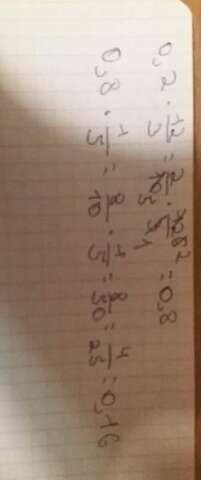 0,2 · 12/3 = 2/10 · 12/3 = 0,8
0,8 · 1/5 = 8/10 · 1/5 = 8/50 = 4/25 = 0,16